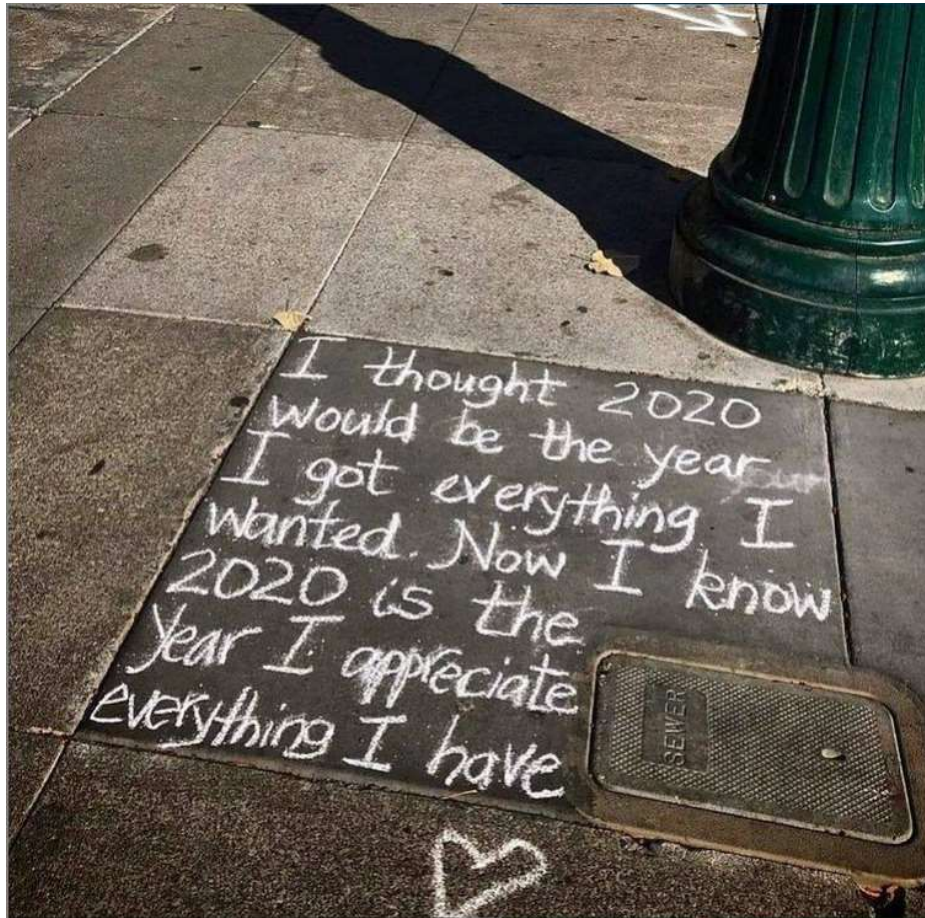 I thought 2020
would be the year
I got everything I
wanted. Now I know
2020 is the
Year I appreciate
everything I have
SEWER